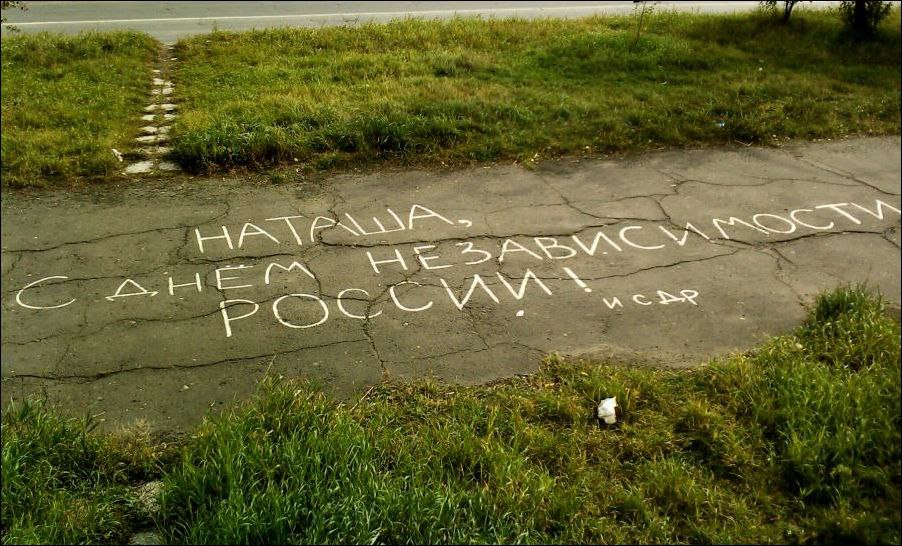 НАТАША,
С ДНЁМ НЕЗАВИСИМОСТИ
РОССИИ! И СДР